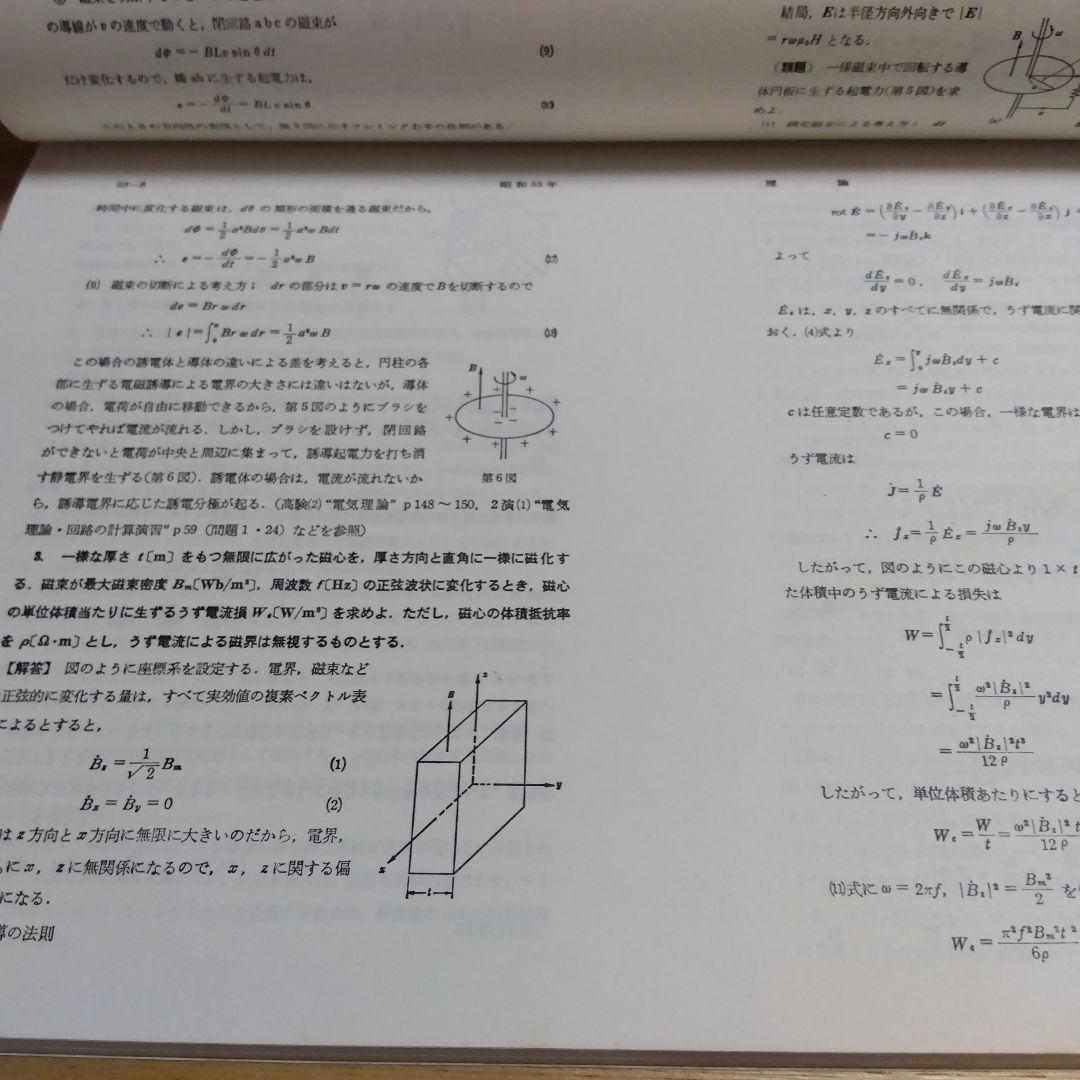 の導線が v の速度で動くと，閉回路 a b c の磁束が
dΦ＝－ BLv sin θ dt (9)
だけ変化するので，棒 ab に生ずる起電力は，
e＝－dΦ/dt＝BLv sin θ
結局，Eは半径方向外向きで |E|
＝rωμ₀H となる．
（類題） 一様磁束中で回転する導
体円板に生ずる起電力(第5図)を求
めよ．
B ω
53—8 昭和53年
時間中に変化する磁束は，dθ の扇形の面積を通る磁束だから，
dΦ＝1/2 a²Bdθ＝1/2 a²ω Bdt
∴ e＝－dΦ/dt＝－1/2 a²ω B
(ii) 磁束の切断による考え方； dr の部分は v＝rω の速度でBを切断するので
de＝Br ω dr
∴ | e |＝∫₀ᵃ Br ω dr＝1/2 a²ω B
この場合の誘電体と導体の違いによる差を考えると，円柱の各
部に生ずる電磁誘導による電界の大きさには違いはないが，導体
の場合，電荷が自由に移動できるから，第5図のようにブラシを
つけてやれば電流が流れる．しかし，ブラシを設けず，閉回路
ができないと電荷が中央と周辺に集まって，誘導起電力を打ち消
す静電界を生ずる(第6図)．誘電体の場合は，電流が流れないか
ら，誘導電界に応じた誘電分極が起る．(高験(2)“電気理論” p 148～150， 2演(1)“電気
理論・回路の計算演習” p 59 (問題1・24) などを参照)
B ω
第6図
3. 一様な厚さ t〔m〕をもつ無限に広がった磁心を，厚さ方向と直角に一様に磁化す
る．磁束が最大磁束密度 Bₘ〔Wb/m²〕，周波数 f〔Hz〕の正弦波状に変化するとき，磁心
の単位体積当たりに生ずるうず電流損 Wₑ〔W/m³〕を求めよ．ただし，磁心の体積抵抗率
を ρ〔Ω・m〕とし，うず電流による磁界は無視するものとする．
【解答】 図のように座標系を設定する．電界，磁束など
正弦的に変化する量は，すべて実効値の複素ベクトル表
によるとすると，
Ḃz＝1/√2 Bₘ (1)
Ḃx＝Ḃy＝0 (2)
は z 方向と x 方向に無限に大きいのだから，電界，
に x， z に無関係になるので， x， z に関する偏
になる．
導の法則
z
B
y
x
t
理 論
rot Ė＝(∂Ėz/∂y－∂Ėy/∂z) i＋(∂Ėx/∂z－∂Ėz/∂x) j＋
＝－ jωḂzk
よって
dĖz/dy＝0， dĖx/dy＝jωḂz
Ėz は，x，y，z のすべてに無関係で，うず電流に関
おく．(4)式より
Ėx＝∫₀ʸ jωḂzdy＋c
＝jω Ḃzy＋c
c は任意定数であるが，この場合，一様な電界は
c＝0
うず電流は
J̇＝1/ρ Ė
∴ J̇x＝1/ρ Ėx＝jω Ḃzy/ρ
したがって，図のようにこの磁心より 1 × t
た体積中のうず電流による損失は
W＝∫_{－t/2}^{t/2} ρ |J̇x|² dy
＝∫_{－t/2}^{t/2} ω²|Ḃz|²/ρ y²dy
＝ω²|Ḃz|²t³/12 ρ
したがって，単位体積あたりにすると
Wₑ＝W/t＝ω²|Ḃz|² t/12 ρ
(11)式に ω＝2πf， |Ḃz|²＝Bₘ²/2 を
Wₑ＝π²f²Bₘ²t²/6ρ